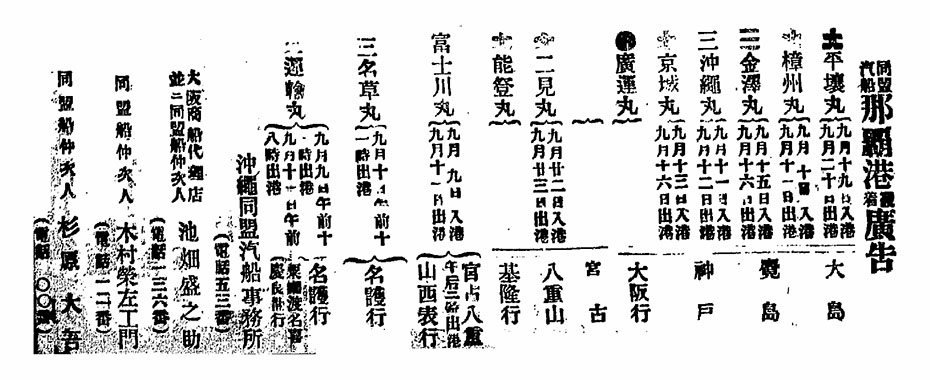 同盟汽船那覇港廣告
平壤丸 九月十九日入港 九月二十日出港
樟州丸 九月十日入港 九月十一日出港
金澤丸 九月十五日入港 九月十六日出港
沖繩丸 九月十一日入港 九月十二日出港
京城丸 九月十三日入港 九月十六日出港
大島
鹿島
神戸
大阪行
廣運丸
二見丸 九月廿二日入港 九月廿三日出港
能登丸
宮古
八重山
基隆行
富士川丸 九月九日入港 九月十一日出港
宮古八重山西表行
午后二時出港
三名草丸 一時出港
名護行
運輸丸 九月九日午前十一時出港
名護行
九月十一日午前八時出港
沖繩同盟汽船事務所
(電話五三番)
大阪商船代理店
並ニ同盟船仲次人 池畑盛之助
(電話一三六番)
同盟船仲次人 木村榮左工門
(電話一二番)
同盟船仲次人 杉原大吾